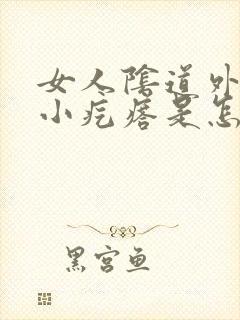 女人陰道外
小疙瘩是怎
黑宫鱼